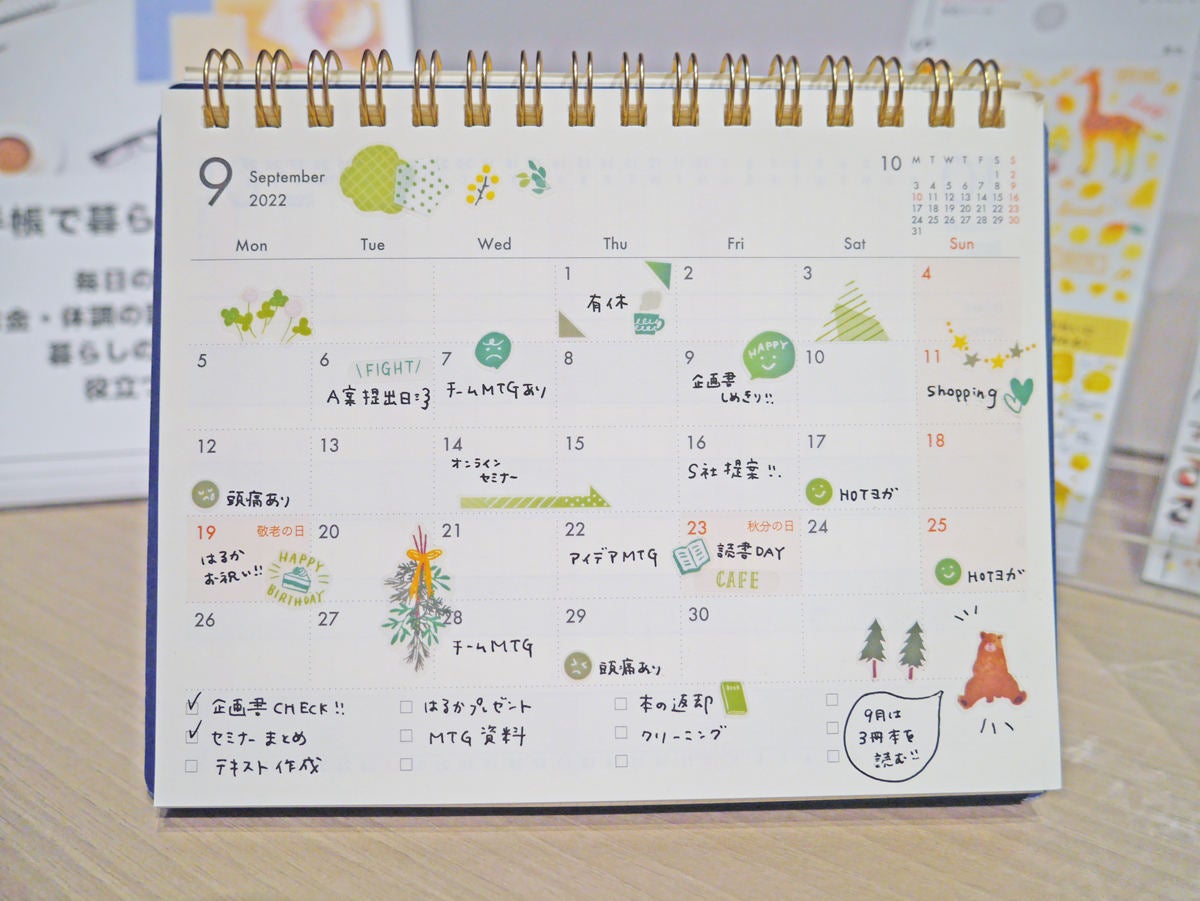 手帳で暮ら
毎日の
金・体調の
暮らしの
役立
9
September
2022
10 M T W T F S S
1 2
3 4 5 6 7 8 9
10 11 12 13 14 15 16
17 18 19 20 21 22 23
24 25 26 27 28 29 30
31
Mon Tue Wed Thu Fri Sat Sun
1 2 3 4
有休
5 6 7 8 9 10 11
\FIGHT/
A案提出日
チームMTGあり
HAPPY
企画書
しめきり!!
Shopping
12 13 14 15 16 17 18
頭痛あり
オンライン
セミナー
S社提案!!
HOTヨガ
19 敬老の日 20 21 22 23 秋分の日 24 25
はるか
お祝い!!
HAPPY
BIRTHDAY
アイデアMTG
読書DAY
CAFE
HOTヨガ
26 27 28 29 30
チームMTG
頭痛あり
企画書CHECK!!
セミナーまとめ
テキスト作成
はるかプレゼント
MTG資料
本の返却
BOOK
クリーニング
9月は
3冊本を
読む!!